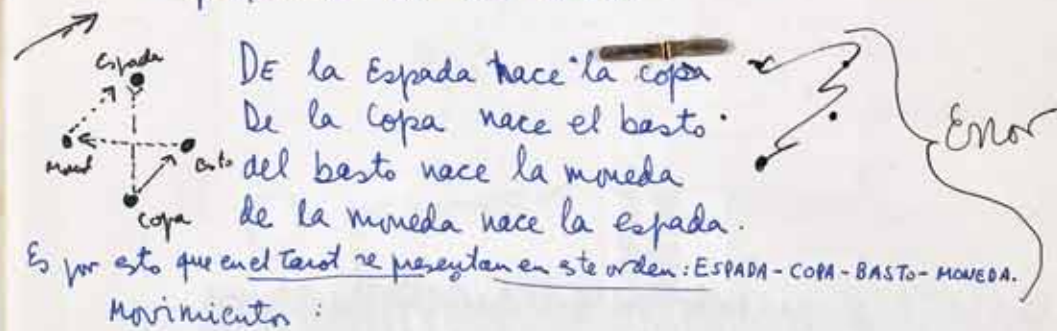 Espada
DE la Espada nace la copa
De la Copa nace el basto.
Moned
Basto
del basto nace la moneda
Copa
de la moneda nace la espada.
Error
Es por esto que en el Tarot se presentan en este orden: ESPADA - COPA - BASTO - MONEDA.
Movimientos: